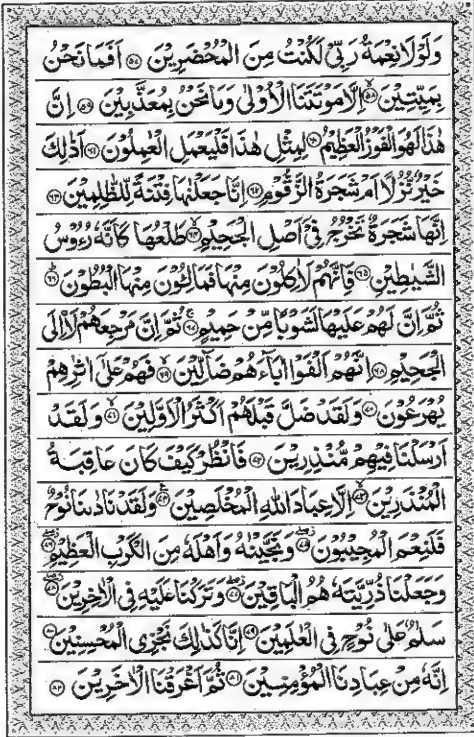 وَلَوْلَا نِعْمَةُ رَبِّيْ لَكُنْتُ مِنَ الْمُحْضَرِيْنَ ﴿۵۷﴾ اَفَمَا نَحْنُ
بِمَيِّتِيْنَ ﴿۵۸﴾ اِلَّا مَوْتَتَنَا الْاُوْلٰى وَمَا نَحْنُ بِمُعَذَّبِيْنَ ﴿۵۹﴾ اِنَّ
هٰذَا لَهُوَ الْفَوْزُ الْعَظِيْمُ ﴿۶۰﴾ لِمِثْلِ هٰذَا فَلْيَعْمَلِ الْعٰمِلُوْنَ ﴿۶۱﴾ اَذٰلِكَ
خَيْرٌ نُّزُلًا اَمْ شَجَرَةُ الزَّقُّوْمِ ﴿۶۲﴾ اِنَّا جَعَلْنٰهَا فِتْنَةً لِّلظّٰلِمِيْنَ ﴿۶۳﴾
اِنَّهَا شَجَرَةٌ تَخْرُجُ فِيْٓ اَصْلِ الْجَحِيْمِ ﴿۶۴﴾ طَلْعُهَا كَاَنَّهٗ رُءُوْسُ
الشَّيٰطِيْنِ ﴿۶۵﴾ فَاِنَّهُمْ لَاٰكِلُوْنَ مِنْهَا فَمَالِـُٔوْنَ مِنْهَا الْبُطُوْنَ ﴿۶۶﴾
ثُمَّ اِنَّ لَهُمْ عَلَيْهَا لَشَوْبًا مِّنْ حَمِيْمٍ ﴿۶۷﴾ ثُمَّ اِنَّ مَرْجِعَهُمْ لَا۟اِلَى
الْجَحِيْمِ ﴿۶۸﴾ اِنَّهُمْ اَلْفَوْا اٰبَآءَهُمْ ضَآلِّيْنَ ﴿۶۹﴾ فَهُمْ عَلٰٓى اٰثٰرِهِمْ
يُهْرَعُوْنَ ﴿۷۰﴾ وَلَقَدْ ضَلَّ قَبْلَهُمْ اَكْثَرُ الْاَوَّلِيْنَ ﴿۷۱﴾ وَلَقَدْ
اَرْسَلْنَا فِيْهِمْ مُّنْذِرِيْنَ ﴿۷۲﴾ فَانْظُرْ كَيْفَ كَانَ عَاقِبَةُ
الْمُنْذَرِيْنَ ﴿۷۳﴾ اِلَّا عِبَادَ اللّٰهِ الْمُخْلَصِيْنَ ﴿۷۴﴾ وَلَقَدْ نَادٰىنَا نُوْحٌ
فَلَنِعْمَ الْمُجِيْبُوْنَ ﴿۷۵﴾ وَنَجَّيْنٰهُ وَاَهْلَهٗ مِنَ الْكَرْبِ الْعَظِيْمِ ﴿۷۶﴾
وَجَعَلْنَا ذُرِّيَّتَهٗ هُمُ الْبَاقِيْنَ ﴿۷۷﴾ وَتَرَكْنَا عَلَيْهِ فِى الْاٰخِرِيْنَ ﴿۷۸﴾
سَلٰمٌ عَلٰى نُوْحٍ فِى الْعٰلَمِيْنَ ﴿۷۹﴾ اِنَّا كَذٰلِكَ نَجْزِى الْمُحْسِنِيْنَ ﴿۸۰﴾
اِنَّهٗ مِنْ عِبَادِنَا الْمُؤْمِنِيْنَ ﴿۸۱﴾ ثُمَّ اَغْرَقْنَا الْاٰخَرِيْنَ ﴿۸۲﴾